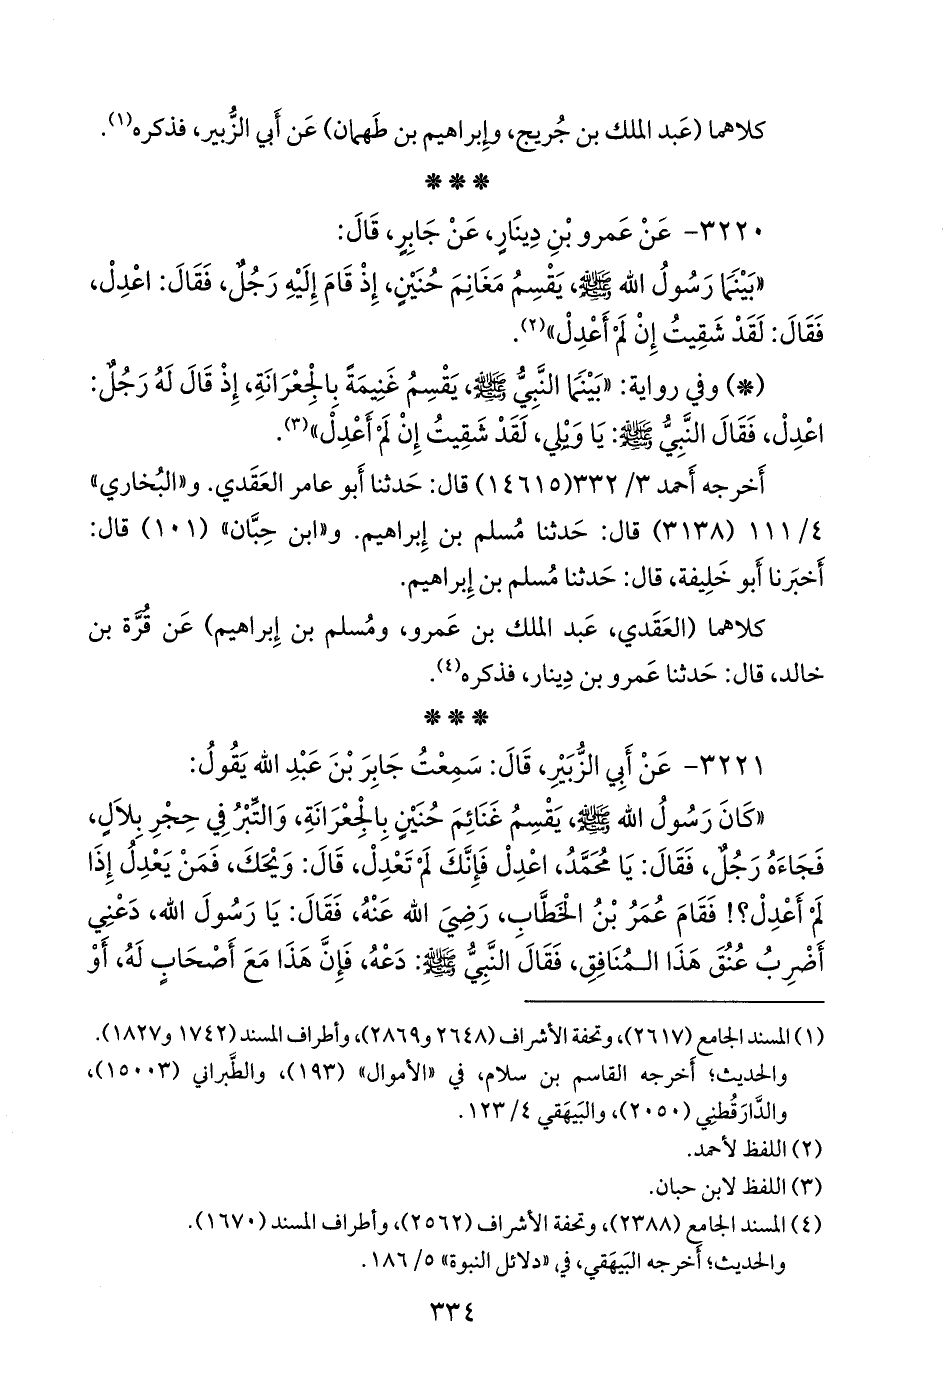 كلاهما (عَبد الملك بن جُريج، وإِبراهيم بن طَهمان) عَن أَبي الزُّبير، فذكره(١).
* * *
٣٢٢٠- عَنْ عَمرو بْنِ دِينَارٍ، عَنْ جَابِرٍ، قَالَ:
«بَيْنَمَا رَسُولُ الله ﷺ، يَقْسِمُ مَغَانِمَ حُنَيْنٍ، إِذْ قَامَ إِلَيْهِ رَجُلٌ، فَقَالَ: اعْدِلْ،
فَقَالَ: لَقَدْ شَقِيتُ إِنْ لَمْ أَعْدِلْ»(٢).
(*) وفي رواية: «بَيْنَمَا النَّبِيُّ ﷺ، يَقْسِمُ غَنِيمَةً بِالْجِعْرَانَةِ، إِذْ قَالَ لَهُ رَجُلٌ:
اعْدِلْ، فَقَالَ النَّبِيُّ ﷺ: يَا وَيْلِي، لَقَدْ شَقِيتُ إِنْ لَمْ أَعْدِلْ»(٣).
أَخرجه أَحمد ٣/ ٣٣٢(١٤٦١٥) قال: حَدثنا أَبو عامر العَقَدي. و«البُخاري»
٤/ ١١١ (٣١٣٨) قال: حَدثنا مُسلم بن إِبراهيم. و«ابن حِبَّان» (١٠١) قال:
أَخبَرنا أَبو خَلِيفة، قال: حَدثنا مُسلم بن إِبراهيم.
كلاهما (العَقَدي، عَبد الملك بن عَمرو، ومُسلم بن إِبراهيم) عَن قُرَّة بن
خالد، قال: حَدثنا عَمرو بن دِينار، فذكره(٤).
* * *
٣٢٢١- عَنْ أَبِي الزُّبَيْرِ، قَالَ: سَمِعْتُ جَابِرَ بْنَ عَبْدِ الله يَقُولُ:
«كَانَ رَسُولُ الله ﷺ، يَقْسِمُ غَنَائِمَ حُنَيْنٍ بِالْجِعْرَانَةِ، وَالتِّبْرُ فِي حِجْرِ بِلَالٍ،
فَجَاءَهُ رَجُلٌ، فَقَالَ: يَا مُحَمَّدُ، اعْدِلْ فَإِنَّكَ لَمْ تَعْدِلْ، قَالَ: وَيْحَكَ، فَمَنْ يَعْدِلُ إِذَا
لَمْ أَعْدِلْ؟! فَقَامَ عُمَرُ بْنُ الْخَطَّابِ، رَضِيَ الله عَنْهُ، فَقَالَ: يَا رَسُولَ الله، دَعْنِي
أَضْرِبُ عُنُقَ هَذَا الـمُنَافِقِ، فَقَالَ النَّبِيُّ ﷺ: دَعْهُ، فَإِنَّ هَذَا مَعَ أَصْحَابٍ لَهُ، أَوْ
(١) المسند الجامع (٢٦١٧)، وتحفة الأشراف (٢٦٤٨ و٢٨٦٩)، وأطراف المسند (١٧٤٢ و١٨٢٧).
والحديث؛ أَخرجه القاسم بن سلام، في «الأموال» (١٩٣)، والطَّبراني (١٥٠٠٣)،
والدَّارَقُطني (٢٠٥٠)، والبَيهَقي ٤/ ١٢٣.
(٢) اللفظ لأحمد.
(٣) اللفظ لابن حبان.
(٤) المسند الجامع (٢٣٨٨)، وتحفة الأشراف (٢٥٦٢)، وأطراف المسند (١٦٧٠).
والحديث؛ أَخرجه البَيهَقي، في «دلائل النبوة» ٥/ ١٨٦.
٣٣٤